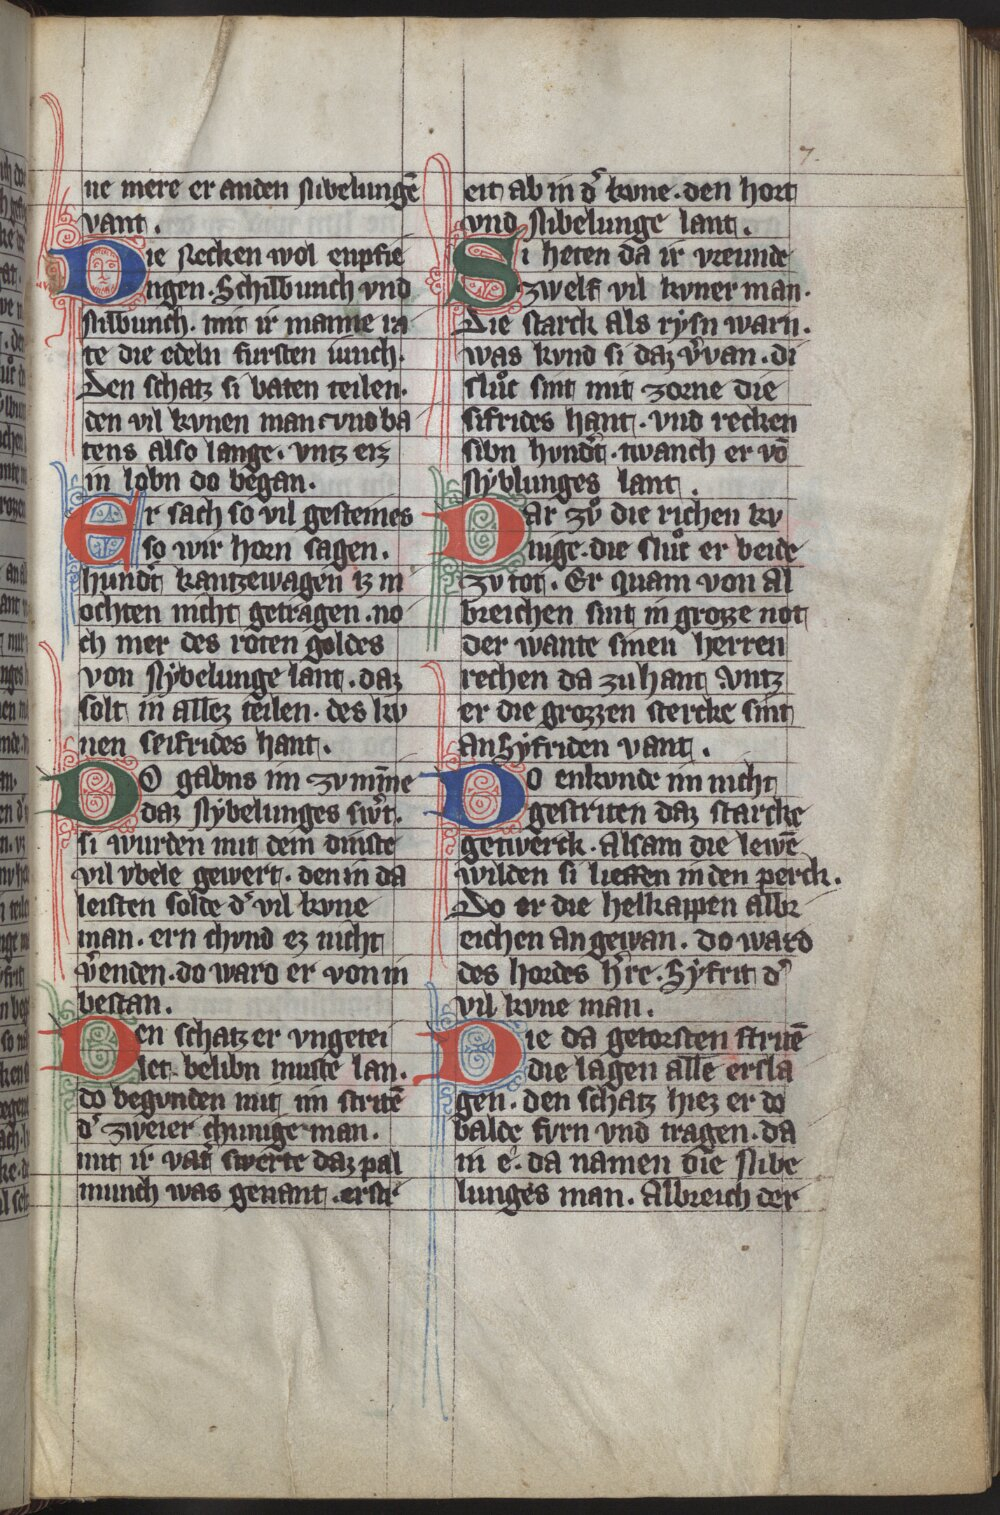 7.
ne mere er anden nibelungē
vant.
Die recken wol enpfie
ngen. Schilbunch vnd
nilbunch. mit ir manne ra
te die edeln fursten iunch.
Den schatz si baten teilen.
den vil kvnen man vnd ba
tens also lange. vntz erz
in lobn do began.
Er sach so vil gesteines
so wir horn sagen.
hundˀt kantzewagen iz m
ochten nicht getragen. no
ch mer des roten goldes
von nybelunge lant. daz
solt in allez teilen. des kv
nen seifrides hant.
Do gabns im zu minne
daz nybelunges swˀt.
si wurden mit dem dinste
vil vbele gewert. den in da
leisten solde dˀ vil kvne
man. ern chvnd ez nicht
vˀenden. do ward er von in
bestan.
Den schatz er vngetei
let belibn muste lan.
do begvnden mit im stritē
dˀ zweier chunige man.
mit ir vatˀ swerte daz pal
munch was genant. erstr
eit ab in dˀ kvne. den hort
vnd nibelunge lant.
Si heten da ir vreunde
zwelf vil kvner man.
Die starck als rysn warn.
was kvnd si daz vˀvan. di
sluͦc sint mit zorne die
sifrides hant. vnd recken
sibn hvndˀt. twanch er vō
nyblunges lant.
Dar zuͦ die richen kv
nige. die sluͦc er beide
zv tot. Er quam von al
breichen sint in grozze not
der wante sinen herren
rechen da zu hant. vntz
er die grozzen stercke sint
an Syfriden vant.
Do enkvnde im nicht
gestriten daz starcke
getwerck. Alsam die lewē
wilden si lieffen in den perck.
Do er die helkappen albr
eichen an gewan. do ward
des hordes hˀre. Syfrit dˀ
vil kvne man.
Die da getorsten stritē
die lagen alle ersla
gen. den schatz hiez er do
balde fvrn vnd tragen. da
in e. da namen die nibe
lunges man. Albreich der